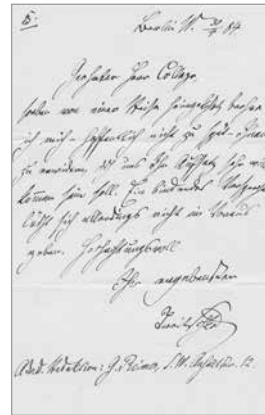 B.
Berlin W. 30/7 84
Geehrter Herr College,
soeben von einer Reise heimgekehrt beehre
ich mich – hoffentlich nicht zu spät – Ihnen
zu erwidern, daß uns Ihr Aufsatz sehr will-
kommen sein soll. Ein bindendes Versprechen
läßt sich allerdings nicht im Voraus
geben. Hochachtungsvoll
Ihr ergebenster
Treitschke
Adr. Redaktion: G. Reimer, S.W. Anhaltstr. 12.